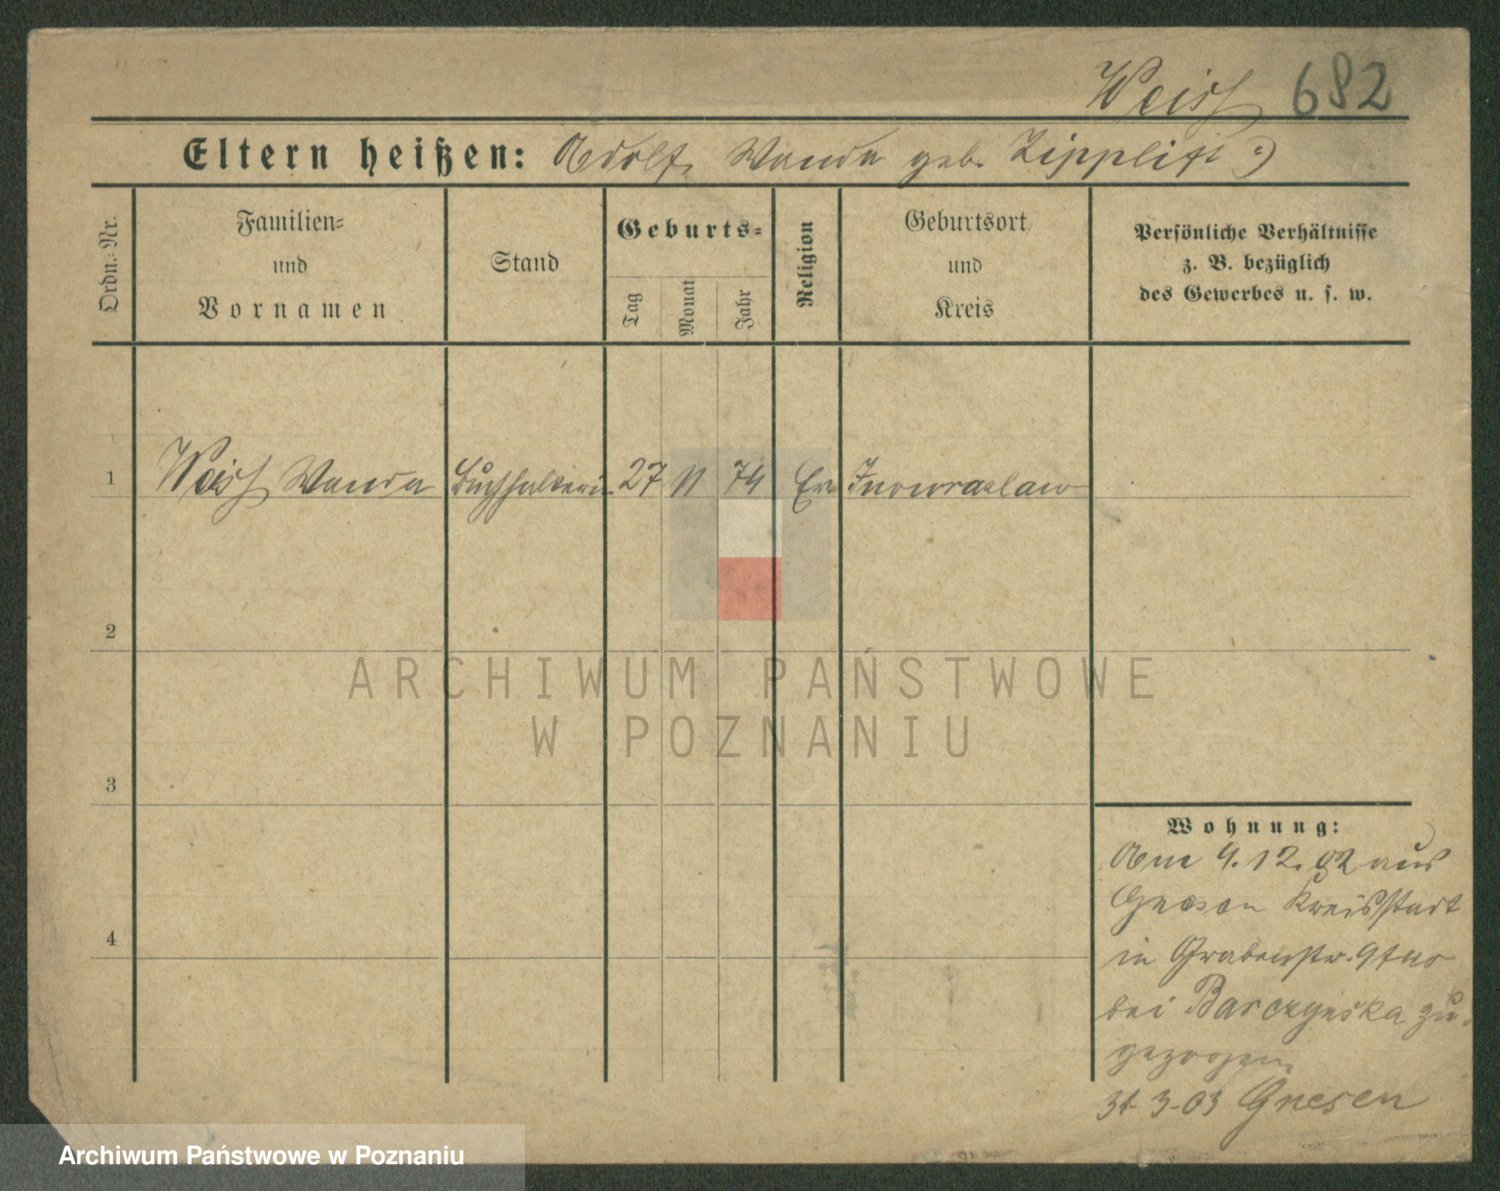 Weiß 682
Eltern heißen: Adolf, Wanda geb.
Ordn.-Nr.
Familien-
und
Vornamen
Stand
Geburts-
Tag
Monat
Jahr
Religion
Geburtsort
und
Kreis
Persönliche Verhältnisse
z. B. bezüglich
des Gewerbes u. s. w.
1 Weiß Wanda Buchhalterin 27 11 74 Ev Inowrazlaw
2
3
4
Wohnung:
Am 4.12.02 aus
Gnesen Kreisstadt
in Grabenstr. 9
bei Barczynska zu-
gezogen.
31-3-03 Gnesen
ARCHIWUM PAŃSTWOWE
W POZNANIU
Archiwum Państwowe w Poznaniu